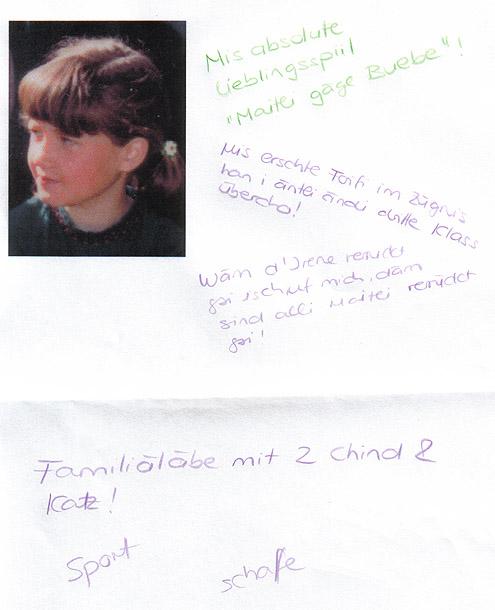 Mis absolute
Lieblingsspiil
"Maitli gäge Buebe"!
Mis erschte Töifi im Zügnis
han i änd dritte Klass
übercho!
Wäm d'Irene verruckt
gsi isch uf mich, däm
sind alli Maitli verruckt
gsi!
Familiäläbe mit 2 Chind &
Katz!
Sport
schaffe